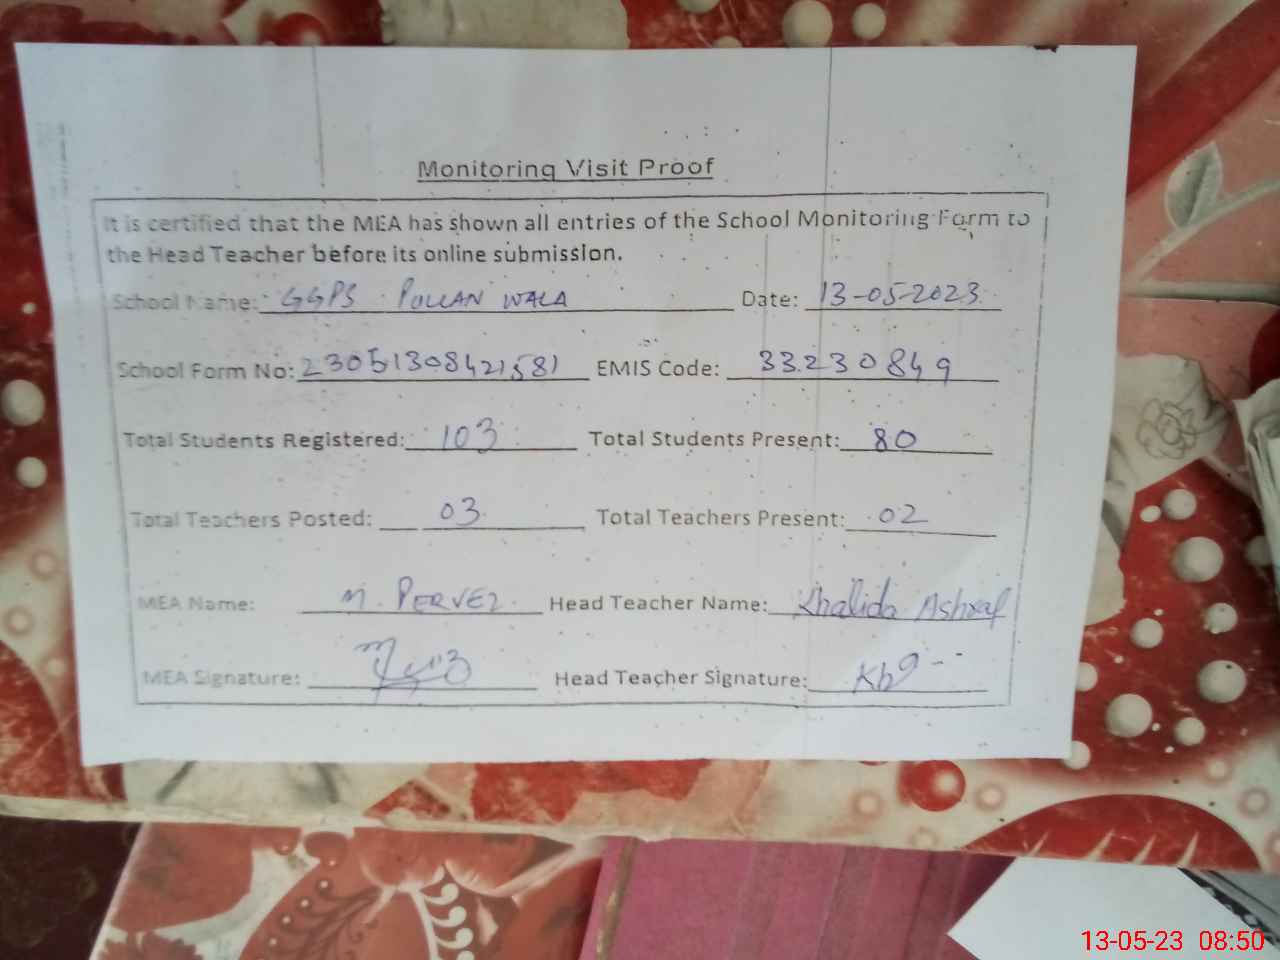 Monitoring Visit Proof
It is certified that the MEA has shown all entries of the School Monitoring Form to
the Head Teacher before its online submission.
School Name: GGPS POLLAN WALA Date: 13-05-2023
School Form No: 23051308421581 EMIS Code: 33230849
Total Students Registered: 103 Total Students Present: 80
Total Teachers Posted: 03 Total Teachers Present: 02
MEA Name: M. PERVEZ Head Teacher Name: Khalida Ashraf
MEA Signature: Head Teacher Signature:
13-05-23 08:50